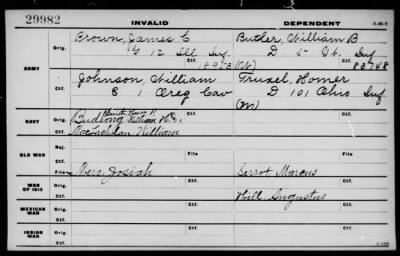 29982 INVALID DEPENDENT 3-312
Brown, James C Butler, William B
Orig. G 12 Ill Inf. Ctf. D 5 Vt. Inf
ARMY
Johnson, William Truxel, Homer
Ctf. E 1 Oreg Cav D 101 Ohio Inf
(M)
NAVY Orig. Budlong William H. Ctf.
Ctf. MacLachlan William
OLD WAR Orig. Ctf.
File Josiah Ctf. Marcus
WAR OF 1812 Orig. Ctf. Hill, Augustus
Ctf.
MEXICAN WAR Orig. Ctf.
Ctf.
INDIAN WAR Orig. Ctf.
Ctf.